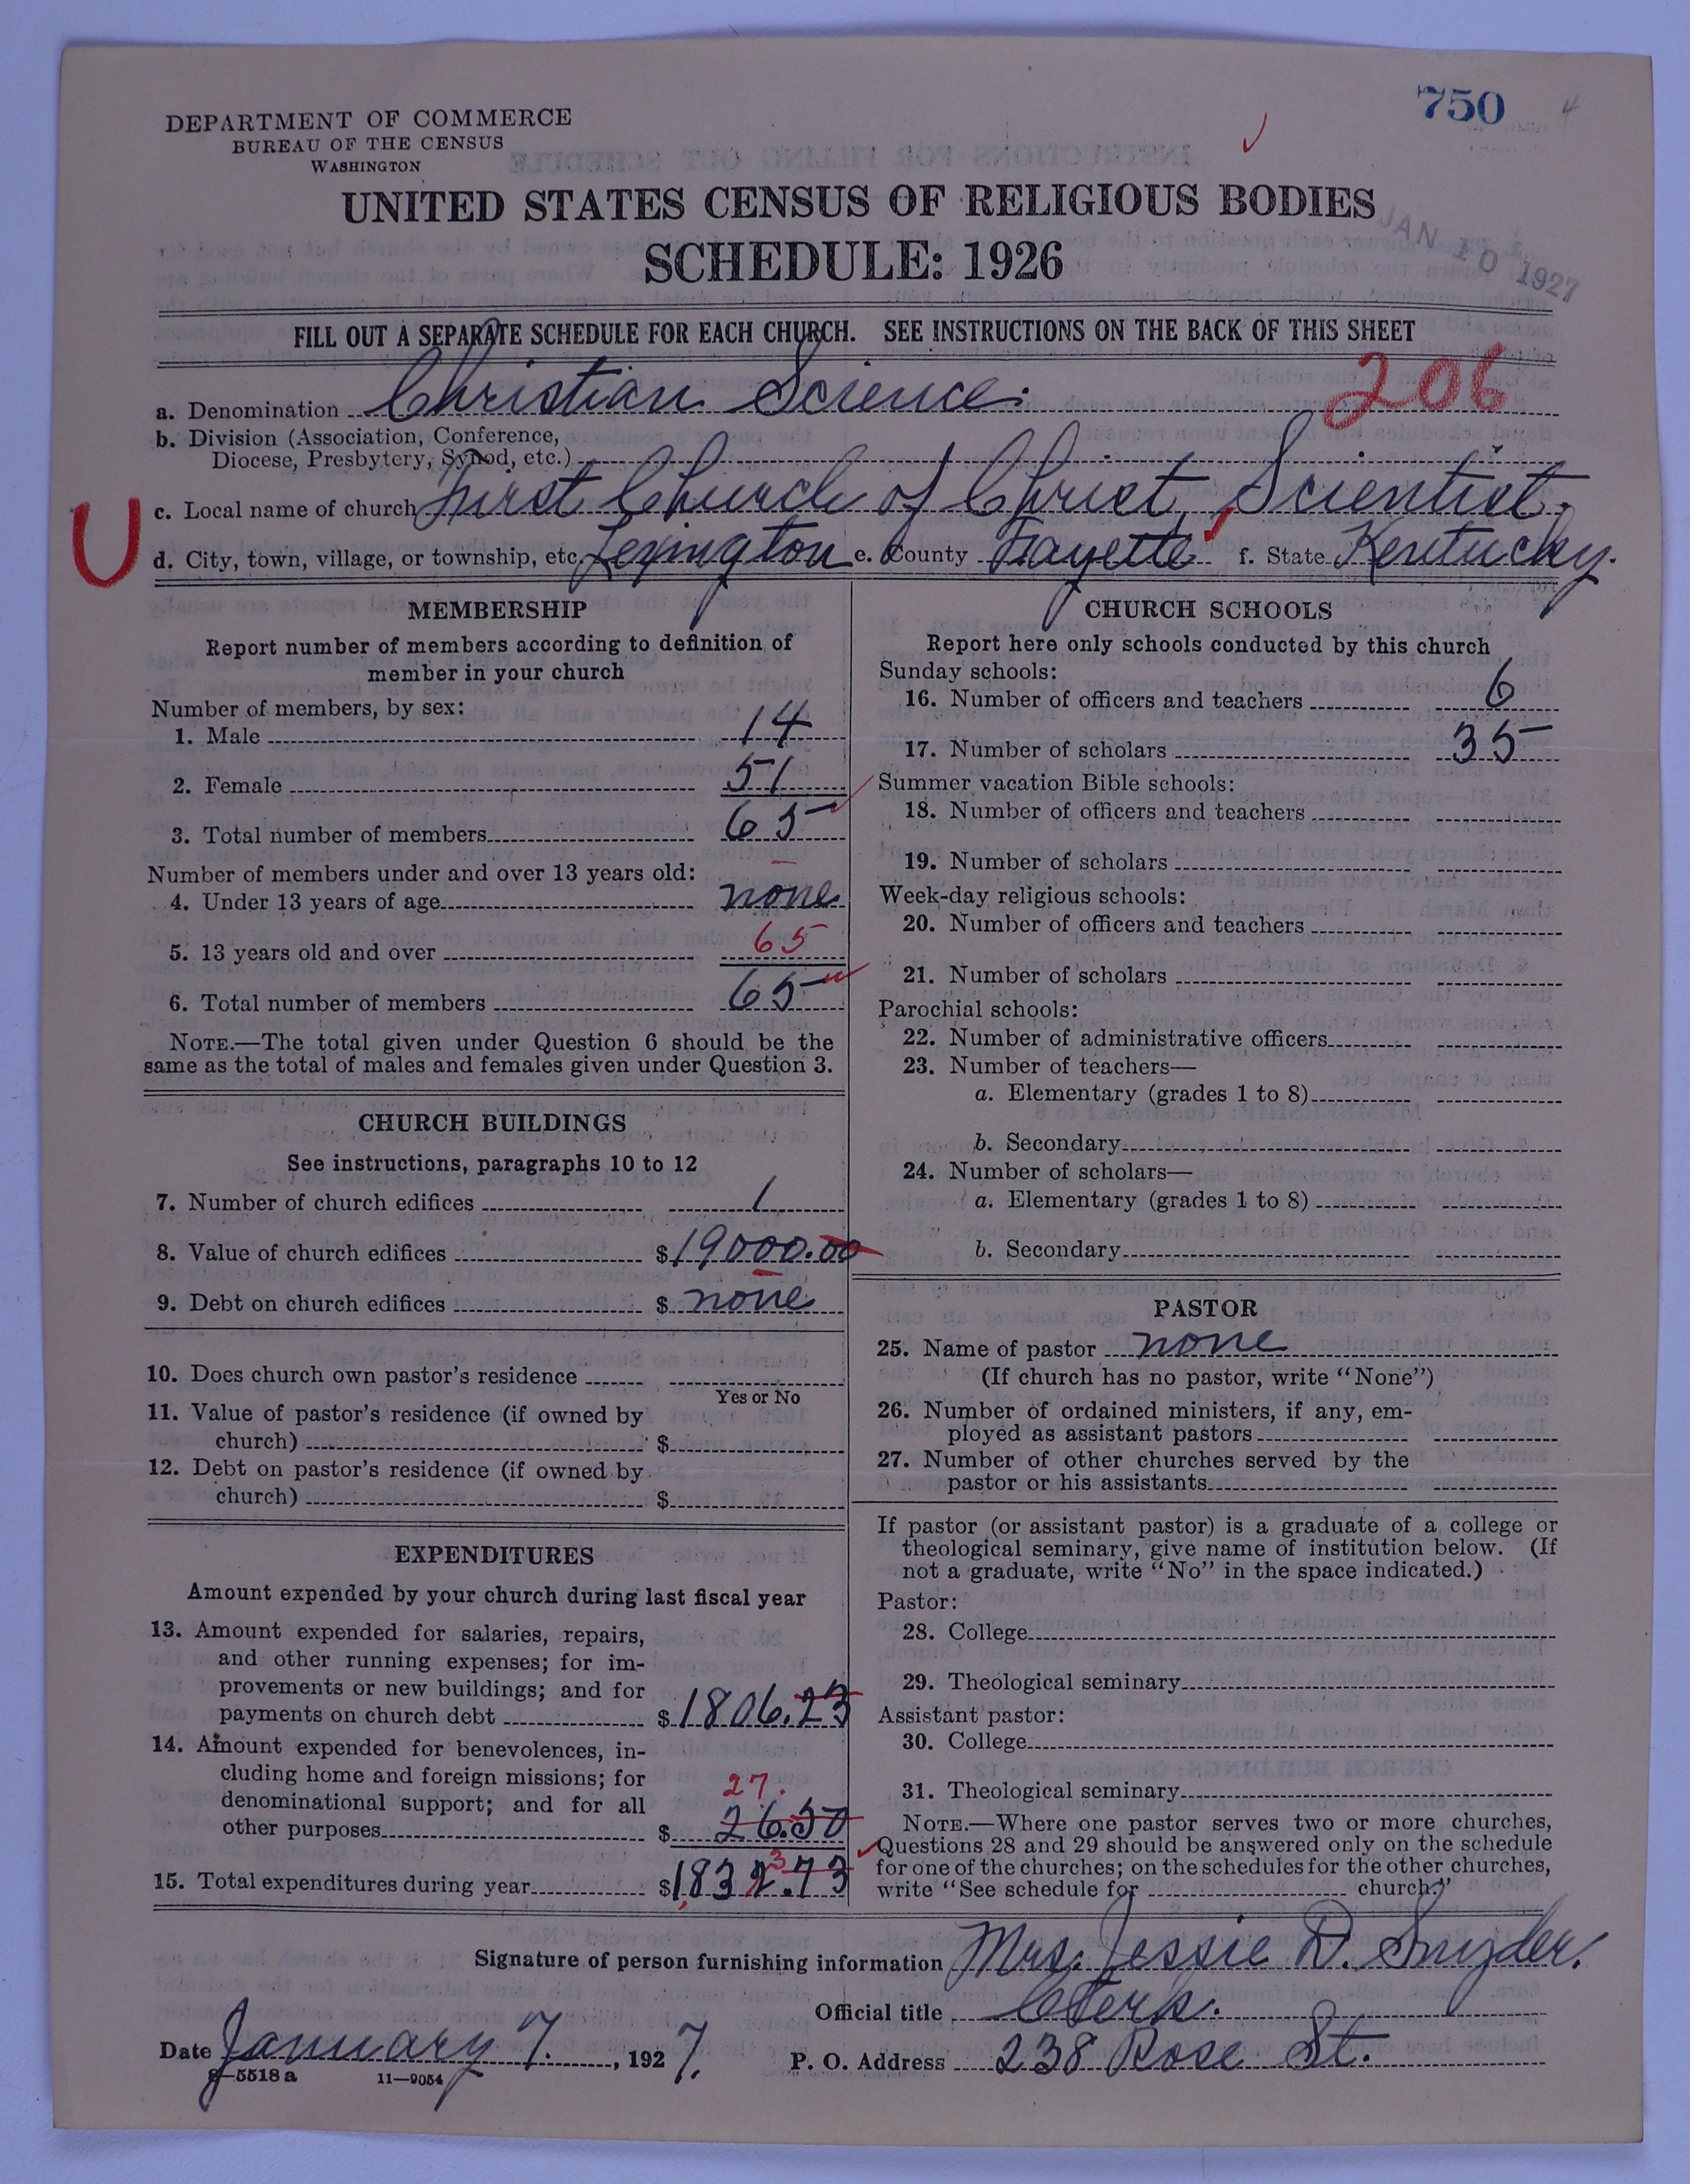 750
DEPARTMENT OF COMMERCE
BUREAU OF THE CENSUS
WASHINGTON
UNITED STATES CENSUS OF RELIGIOUS BODIES
SCHEDULE: 1926
JAN 10 1927
FILL OUT A SEPARATE SCHEDULE FOR EACH CHURCH. SEE INSTRUCTIONS ON THE BACK OF THIS SHEET
206
a. Denomination Christian Science.
b. Division (Association, Conference,
Diocese, Presbytery, Synod, etc.)
U
c. Local name of church First Church of Christ, Scientist.
d. City, town, village, or township, etc. Lexington e. County Fayette f. State Kentucky.
MEMBERSHIP
Report number of members according to definition of
member in your church
Number of members, by sex:
1. Male 14
2. Female 51
3. Total number of members 65
Number of members under and over 13 years old:
4. Under 13 years of age none
5. 13 years old and over 65
6. Total number of members 65
NOTE.—The total given under Question 6 should be the
same as the total of males and females given under Question 3.
CHURCH BUILDINGS
See instructions, paragraphs 10 to 12
7. Number of church edifices 1
8. Value of church edifices $19000.00
9. Debt on church edifices $ none
10. Does church own pastor's residence
Yes or No
11. Value of pastor's residence (if owned by
church) $
12. Debt on pastor's residence (if owned by
church) $
EXPENDITURES
Amount expended by your church during last fiscal year
13. Amount expended for salaries, repairs,
and other running expenses; for im-
provements or new buildings; and for
payments on church debt $1806.23
14. Amount expended for benevolences, in-
cluding home and foreign missions; for
denominational support; and for all
27.
other purposes $ 26.50
3
15. Total expenditures during year $1,832.73
CHURCH SCHOOLS
Report here only schools conducted by this church
Sunday schools:
16. Number of officers and teachers 6
17. Number of scholars 35
Summer vacation Bible schools:
18. Number of officers and teachers
19. Number of scholars
Week-day religious schools:
20. Number of officers and teachers
21. Number of scholars
Parochial schools:
22. Number of administrative officers
23. Number of teachers—
a. Elementary (grades 1 to 8)
b. Secondary
24. Number of scholars—
a. Elementary (grades 1 to 8)
b. Secondary
PASTOR
25. Name of pastor none
(If church has no pastor, write "None")
26. Number of ordained ministers, if any, em-
ployed as assistant pastors
27. Number of other churches served by the
pastor or his assistants
If pastor (or assistant pastor) is a graduate of a college or
theological seminary, give name of institution below. (If
not a graduate, write "No" in the space indicated.)
Pastor:
28. College
29. Theological seminary
Assistant pastor:
30. College
31. Theological seminary
NOTE.—Where one pastor serves two or more churches,
Questions 28 and 29 should be answered only on the schedule
for one of the churches; on the schedules for the other churches,
write "See schedule for church."
Signature of person furnishing information Mrs. Jessie D. Snyder.
Official title Clerk.
Date January 7. , 1927. P. O. Address 238 Rose St.
8—5518a 11—9054